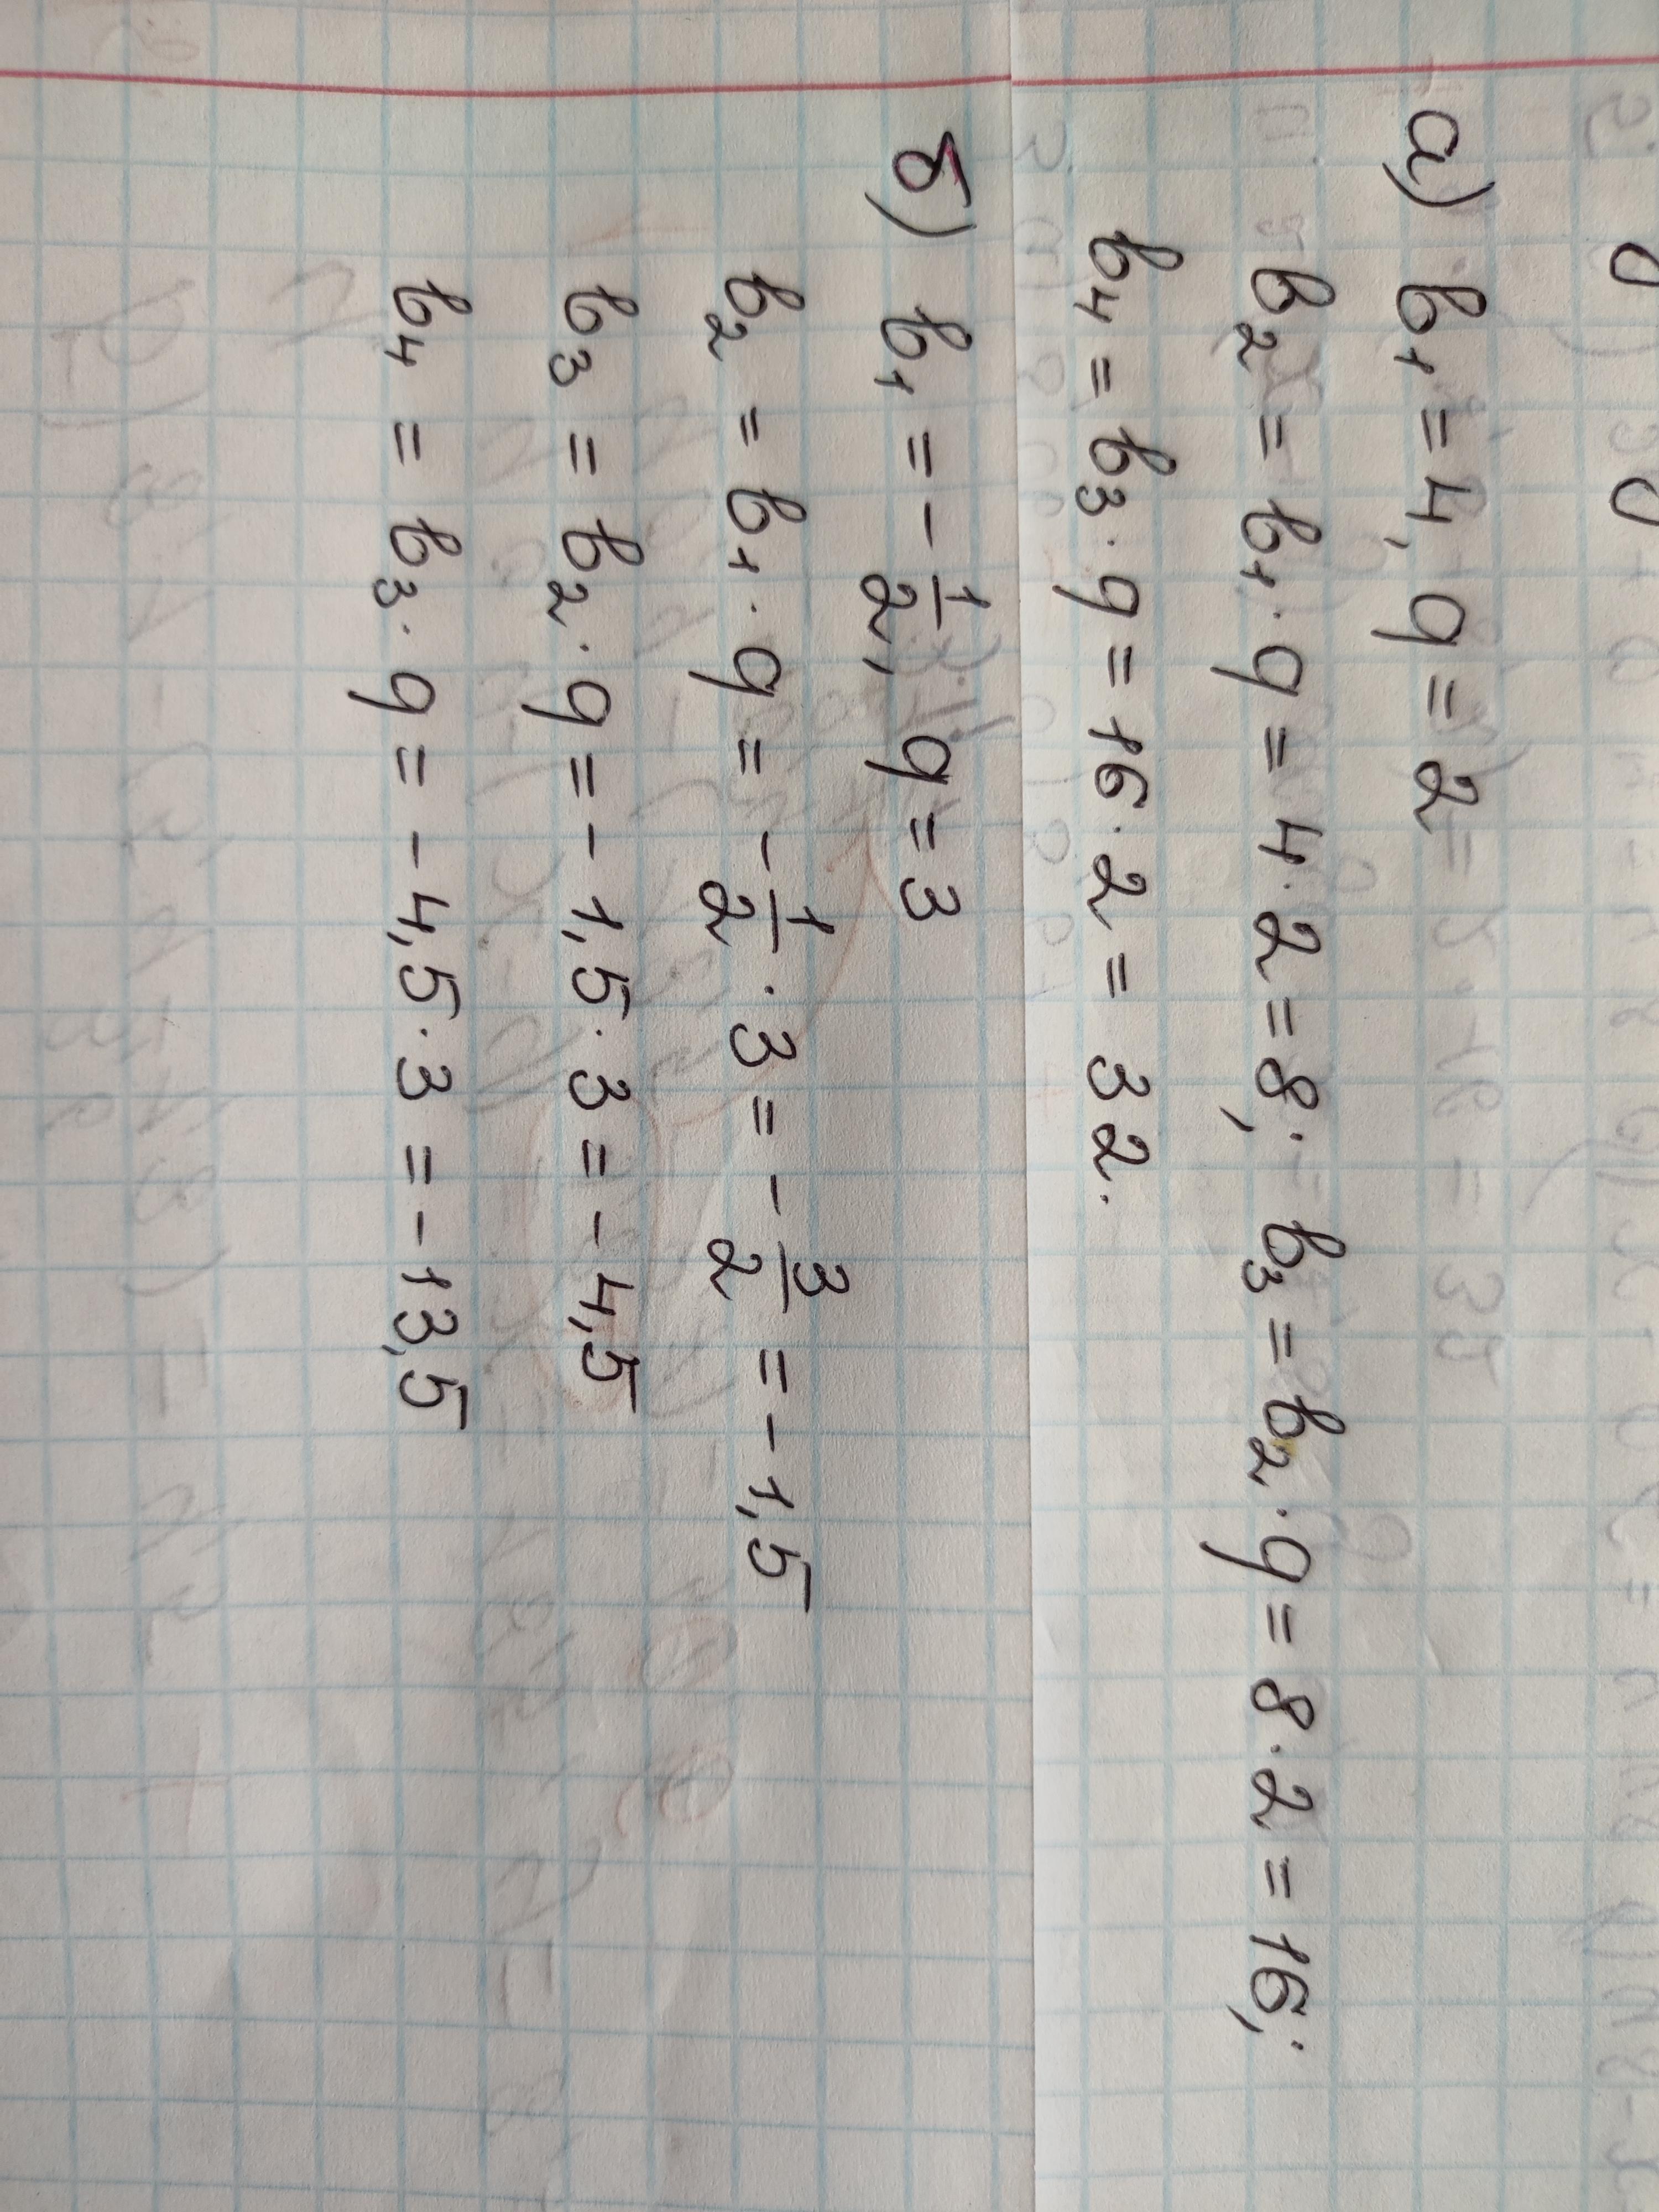 а) b₁ = 4, q = 2
b₂ = b₁ · q = 4 · 2 = 8; b₃ = b₂ · q = 8 · 2 = 16;
b₄ = b₃ · q = 16 · 2 = 32.
б) b₁ = - 1/2, q = 3
b₂ = b₁ · q = - 1/2 · 3 = - 3/2 = - 1,5
b₃ = b₂ · q = - 1,5 · 3 = - 4,5
b₄ = b₃ · q = - 4,5 · 3 = - 13,5